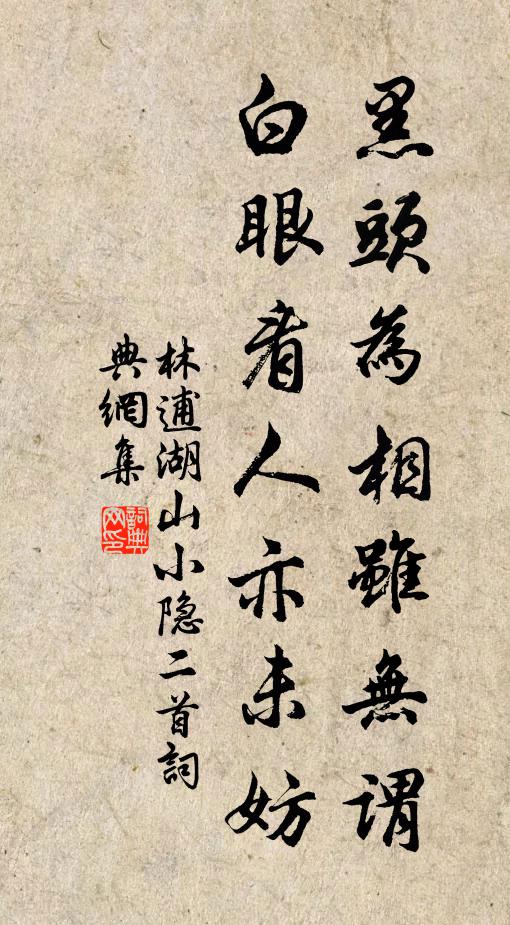 黑頭為相雖無謂
白眼看人亦未妨
林逋湖山小隐二首詞
典網集
詞典网印